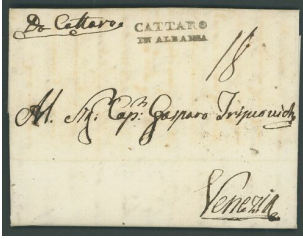 Da Cattaro
CATTARO
IN ALBANIA
18
Al Sig: Cap: Gasparo Tripcovich
Venezia